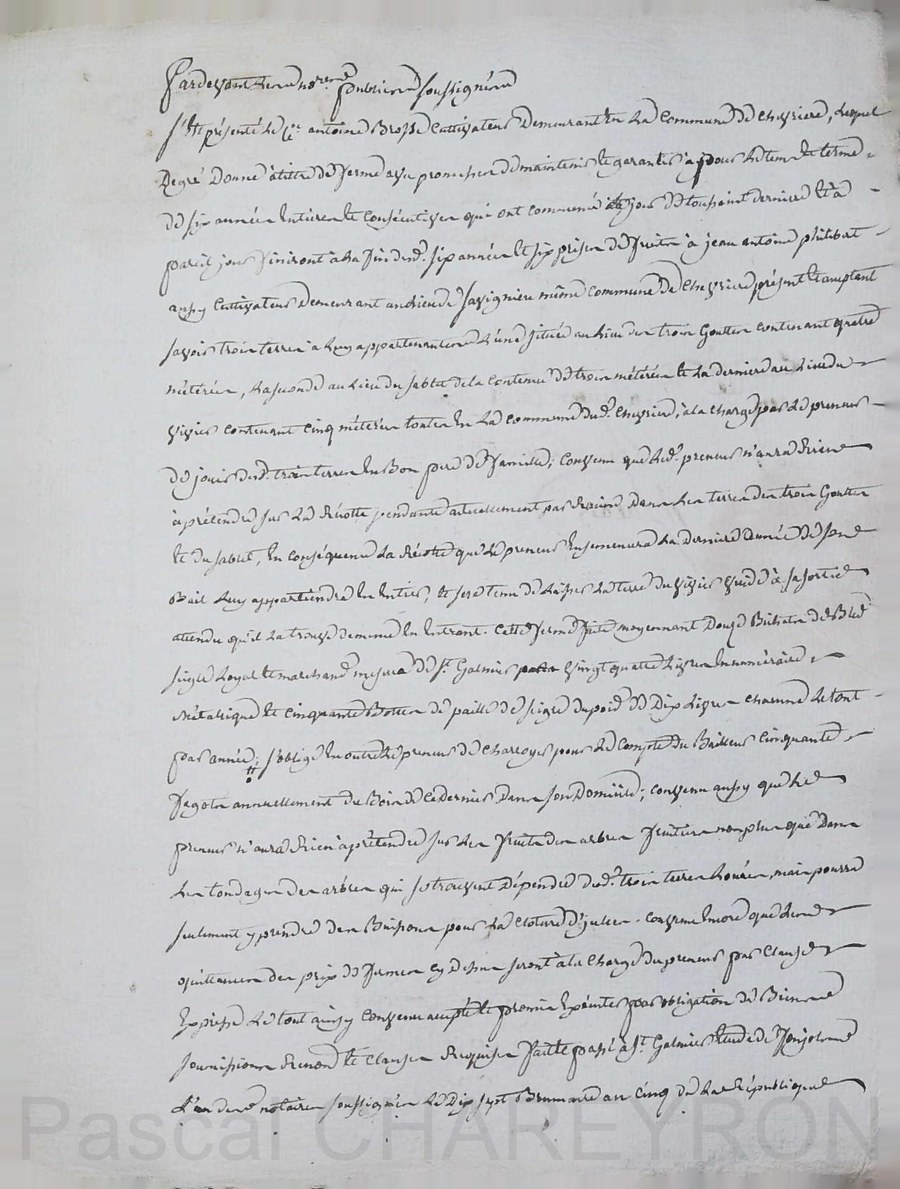 Pardevant Les no.res publics soussignés
S'est présenté Le C.en antoine Brosse Cultivateur Demeurant En La Commune De Chevriere, Lequel
De gré Donne à titre De ferme avec promesse De maintenir Et garantir à pour Le tem Et terme
De six années Entieres Et Consécutives qui ont commencé le jour De toussaint dernier Et à
pareil jour finiront à La fin desd. six années Et six prises De fruits à jean antoine philibert
aussy Cultivateur Demeurant au lieu De Savigniere même Commune De Chevriere présent Et acceptant
savoir trois terres a Luy appartenantes L'une située au Lieu des trois Gouttes contenant quatre
métérées, La seconde au Lieu du sablet De la Contenue De trois métérées Et La derniere au Lieu du
vivier contenant cinq métérées toutes En La commune dud. Chevriere, à la charge par Le preneur
De jouir desd. trois terres En Bon pere De famille; Convenu que Led. preneur n'aura Rien
à prétendre sur La Récolte pendante actuellement par Racine Dans Les terres des trois Gouttes
Et du sablet, En conséquence La Récolte que Le preneur Ensemencera La derniere année De son
Bail Luy appartiendra En Entier, Et sera tenu De Laisser La terre du vivier vuide à sa sortie
attendu qu'il La trouve de même En Entrant. Cette ferme faite moyennant Douze Bichets De Bled
seigle Royal Et marchand mesure De St. Galmier vingt quatre Livres En numéraire
métalique Et Cinquante Bottes De paille De seigle du poid De Dix Livres chacune Le tout
par année; s'oblige En outre Le preneur De Charroyer pour Le Compte du Bailleur Cinquante
fagots annuellement du Bois De Ce dernier Dans son Domicile; convenu aussy que Le
preneur n'aura Rien à prétendre sur Les fruits des arbres fruitiers non plus que Dans
Les tondages des arbres qui se trouvent Dépendre desd. trois terres Louées, mais pourra
seulement y prendre des Buissons pour La Cloture d'jcelles. Convenu Encore que Les
quittances du prix De ferme cy Dessus seront à la Charge du preneur par Clause
Expresse Le tout ainsy Convenu accepté Et promis Exécuter par obligation De Biens
soumissions Renon. Et Clauses Requises fait Et passé à St. Galmier Etude De Ponjolon
L'un des notaires soussignés Le Dix sept Brumaire an Cinq De La République
Pascal CHAREYRON